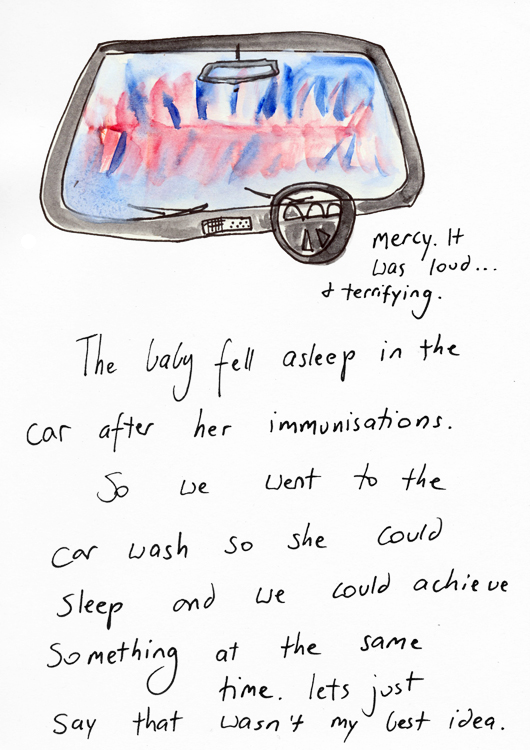 mercy. It
was loud...
& terrifying.
The baby fell asleep in the
car after her immunisations.
So we went to the
car wash so she could
sleep and we could achieve
Something at the same
time. lets just
say that wasn't my best idea.